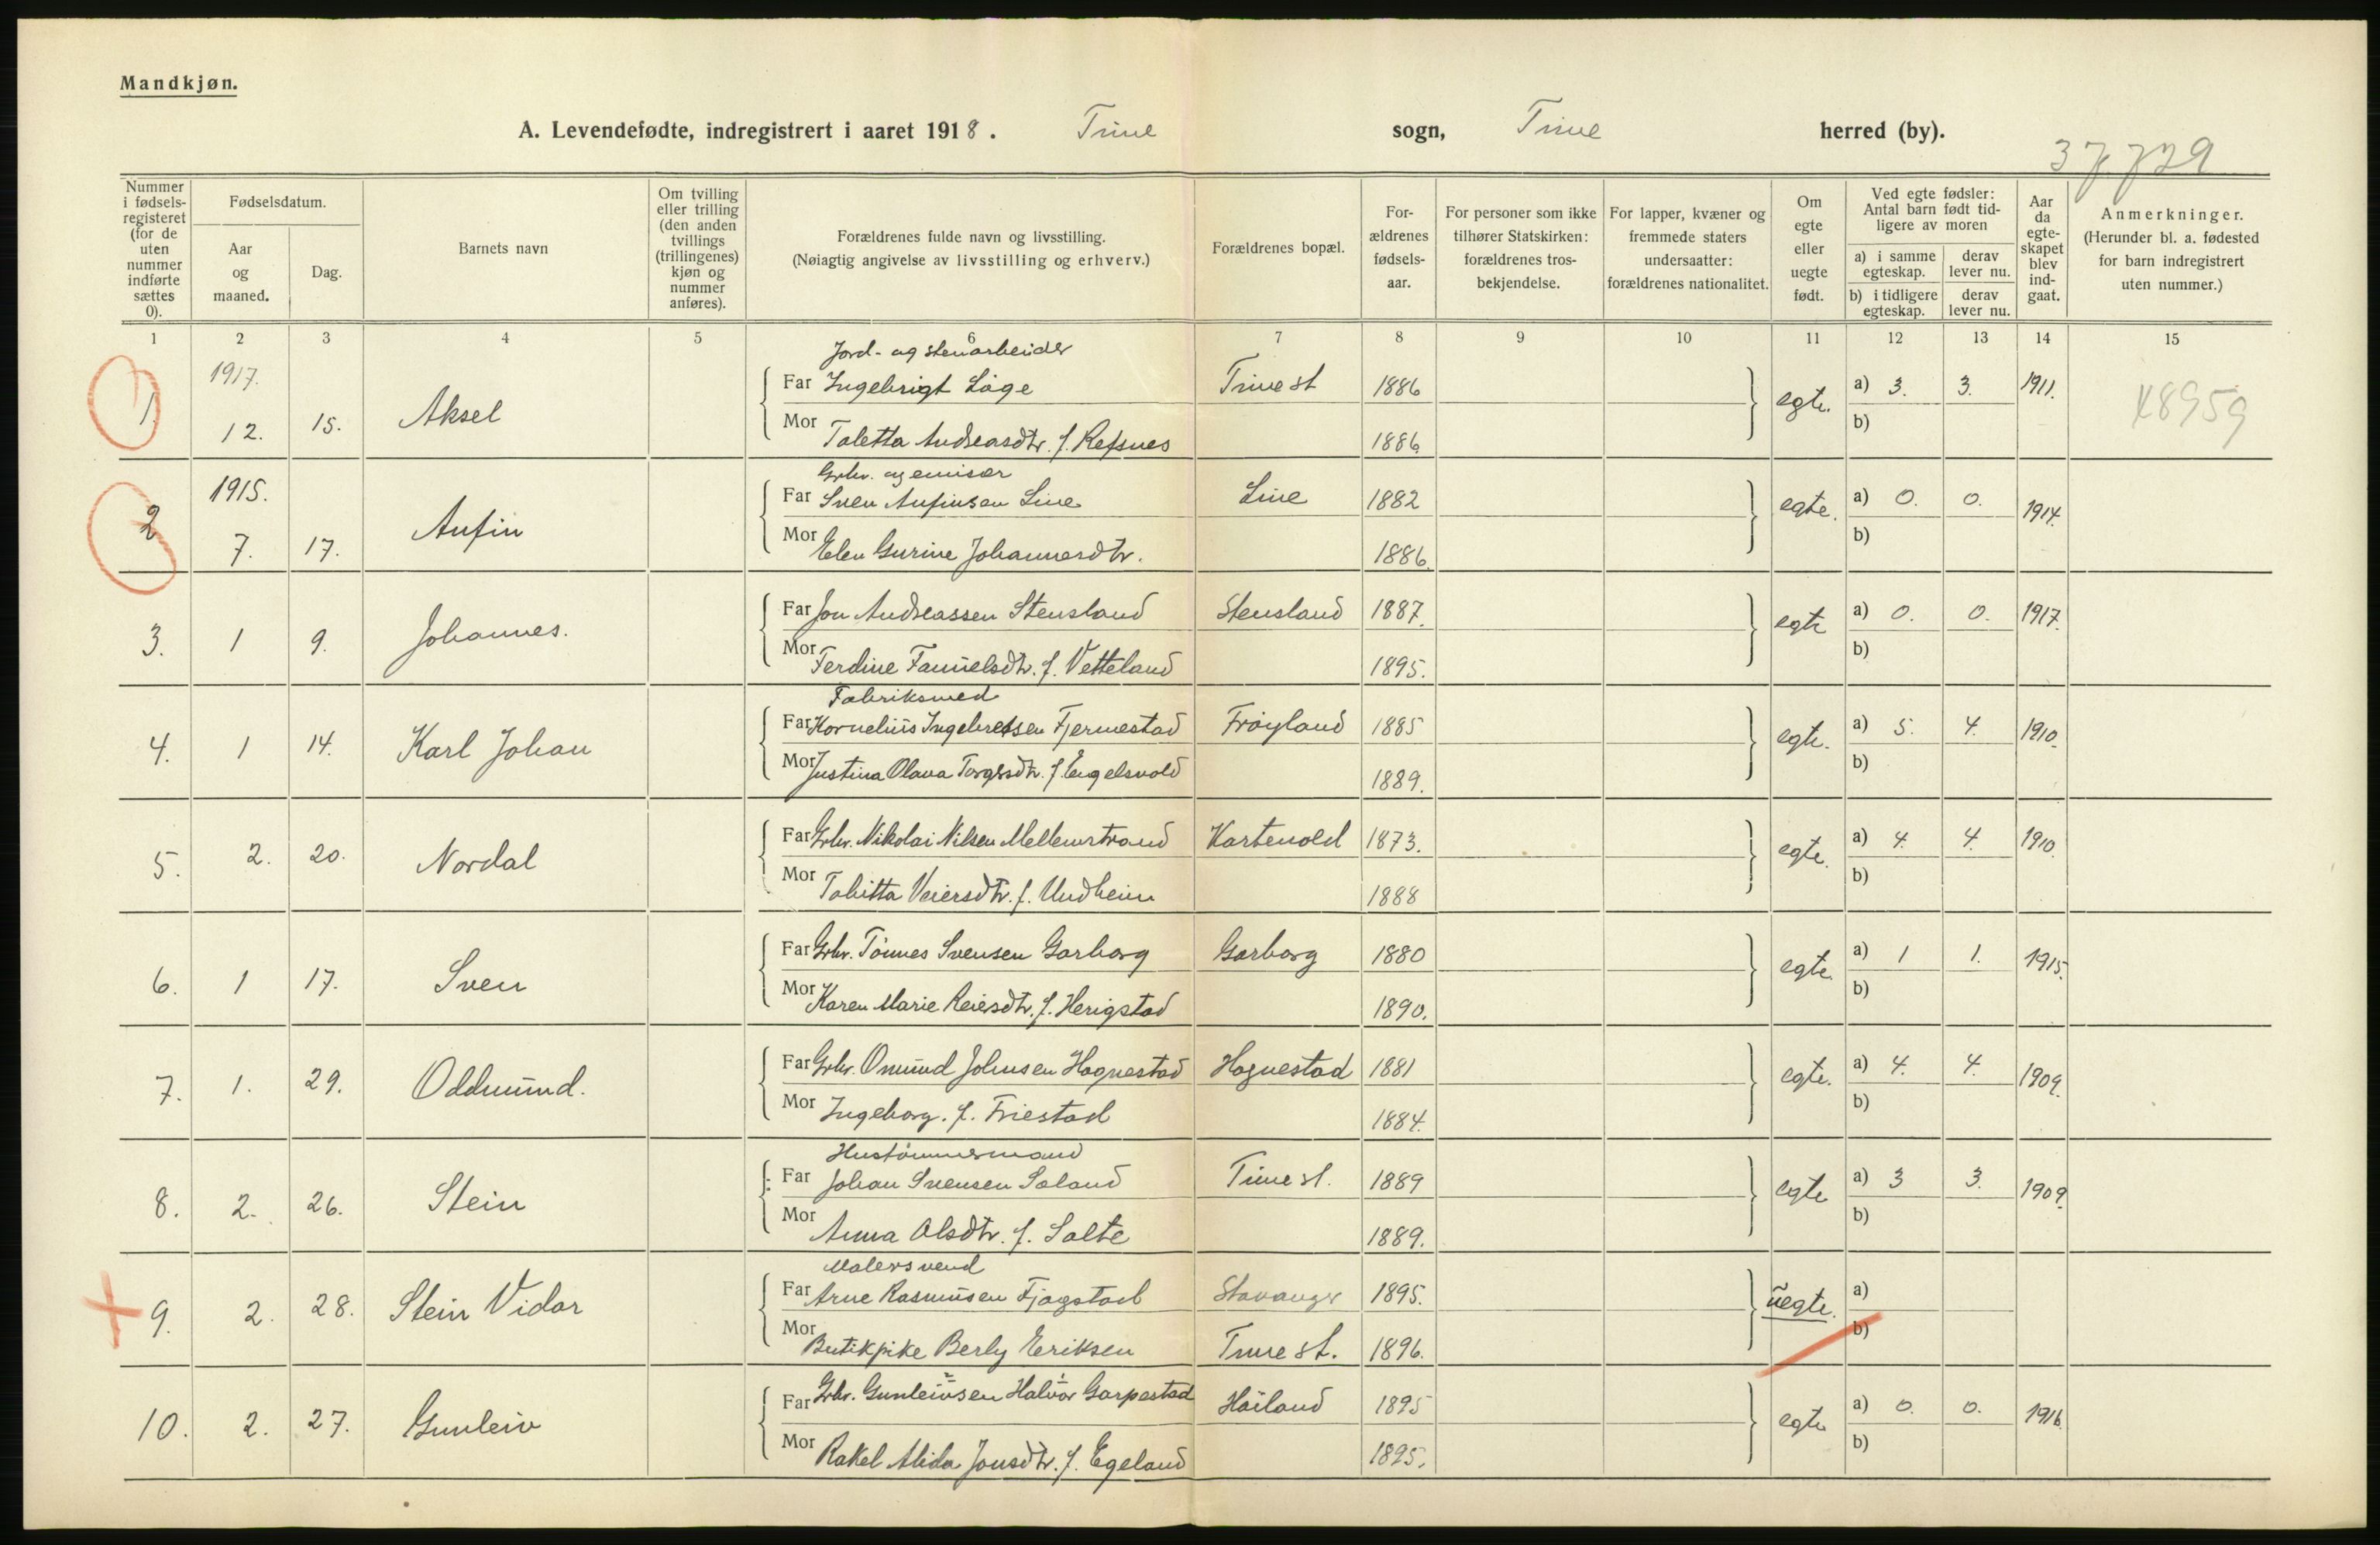 Mandkjøn.
A. Levendefødte, indregistrert i aaret 1918. Time sogn, Time herred (by).
37,729
Nummer i fødselsregisteret (for de uten nummer indførte sættes 0).
Fødselsdatum.
Aar og maaned.
Dag.
Barnets navn
Om tvilling eller trilling (den anden tvillings (trillingenes) kjøn og nummer anføres).
Forældrenes fulde navn og livsstilling.
(Nøiagtig angivelse av livsstilling og erhverv.)
Forældrenes bopæl.
Forældrenes fødselsaar.
For personer som ikke tilhører Statskirken: forældrenes trosbekjendelse.
For lapper, kvæner og fremmede staters undersaatter: forældrenes nationalitet.
Om egte eller uegte født.
Ved egte fødsler: Antal barn født tidligere av moren
a) i samme egteskap. derav lever nu.
b) i tidligere egteskap. derav lever nu.
Aar da egteskapet blev indgaat.
Anmerkninger.
(Herunder bl. a. fødested for barn indregistrert uten nummer.)
1 2 3 4 5 6 7 8 9 10 11 12 13 14 15
Jord- og stenarbeider
1917. Far Ingebrigt Låge Time st 1886 a) 3. 3. 1911. 48959
1. 12. 15. Aksel egte. b)
Mor Taletta Andreasdtr. f. Refsnes 1886
Grbr. og emisær
1915. Far Sven Anfinsen Line Line 1882 a) 0. 0. 1914.
2 7. 17. Anfin egte. b)
Mor Elen Gurine Johannesdtr. 1886.
Far Jon Andreassen Stensland Stensland 1887. a) 0. 0. 1917.
3. 1 9. Johannes. egte b)
Mor Terdine Fanuelsdtr. f. Vetteland 1895.
Fabriksmed
Far Kornelius Ingebretsen Fjermestad Frøyland 1885 a) 5. 4. 1910.
4. 1 14. Karl Johan egte. b)
Mor Justina Olava Torgersdtr. f. Engelsvold 1889.
Far Grbr. Nikolai Nilsen Mellemstrand Kartevold 1873. a) 4. 4. 1910.
5. 2. 20. Nordal egte. b)
Mor Tabitta Veiersdtr. f. Undheim 1888
Far Grbr. Tønnes Svensen Garborg Garborg 1880 a) 1 1. 1915.
6. 1 17. Sven egte. b)
Mor Karen Marie Reiersdtr. f. Herigstad 1890.
Far Grbr. Omund Johnsen Hognestad Hognestad 1881 a) 4. 4. 1909.
7. 1. 29. Oddmund. egte. b)
Mor Ingeborg. f. Friestad 1884.
Hustømmermand
Far Johan Svensen Saland Time st. 1889 a) 3 3. 1909.
8. 2. 26. Stein egte b)
Mor Anna Olsdtr. f. Salte 1889.
Malersvend
Far Arne Rasmusen Fjogstad Stavanger 1895. a)
9. 2. 28. Stein Vidar uegte. b)
Mor Butikpike Berly Eriksen Time st. 1896.
Far Grbr. Gunleivsen Halvor Garpestad Håland 1895 a) 0. 0. 1916.
10. 2. 27. Gunleiv egte b)
Mor Rakel Alida Jonsdtr. f. Egeland 1895.